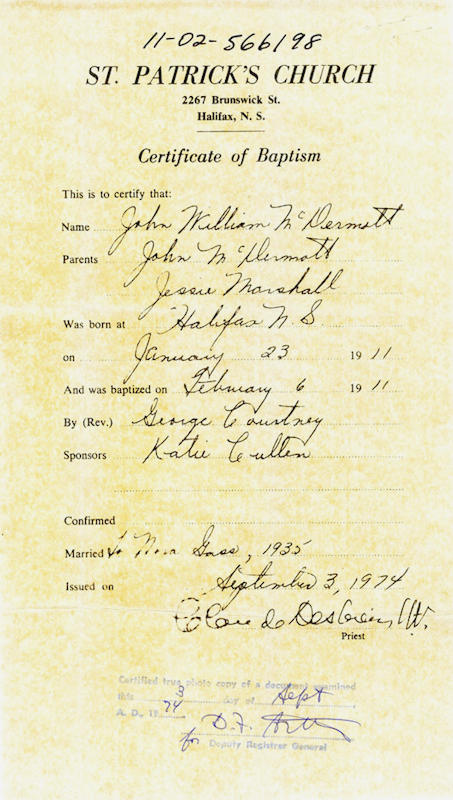 11-02-566198
ST. PATRICK'S CHURCH
2267 Brunswick St.
Halifax, N. S.
Certificate of Baptism
This is to certify that:
Name John William McDermott
Parents John McDermott
Jessie Marshall
Was born at Halifax N S.
on January 23 1911
And was baptized on February 6 1911
By (Rev.) George Courtney
Sponsors Katie Cullen
Confirmed
Married to Nora Gass, 1935
Issued on September 3, 1974
Priest
Certified true photo copy of a document examined
this 3 day of Sept
A. D., 1974
for D.F.
Deputy Registrar General